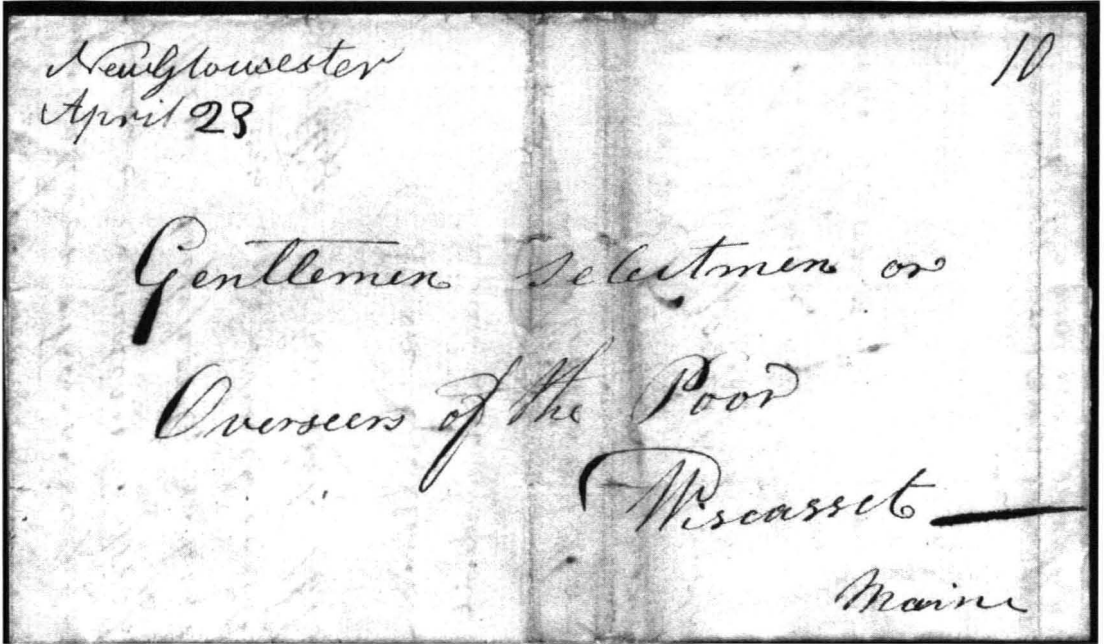 NewGloucester
April 23
10
Gentlemen Selectmen or
Overseers of the Poor
Wiscasset
Maine